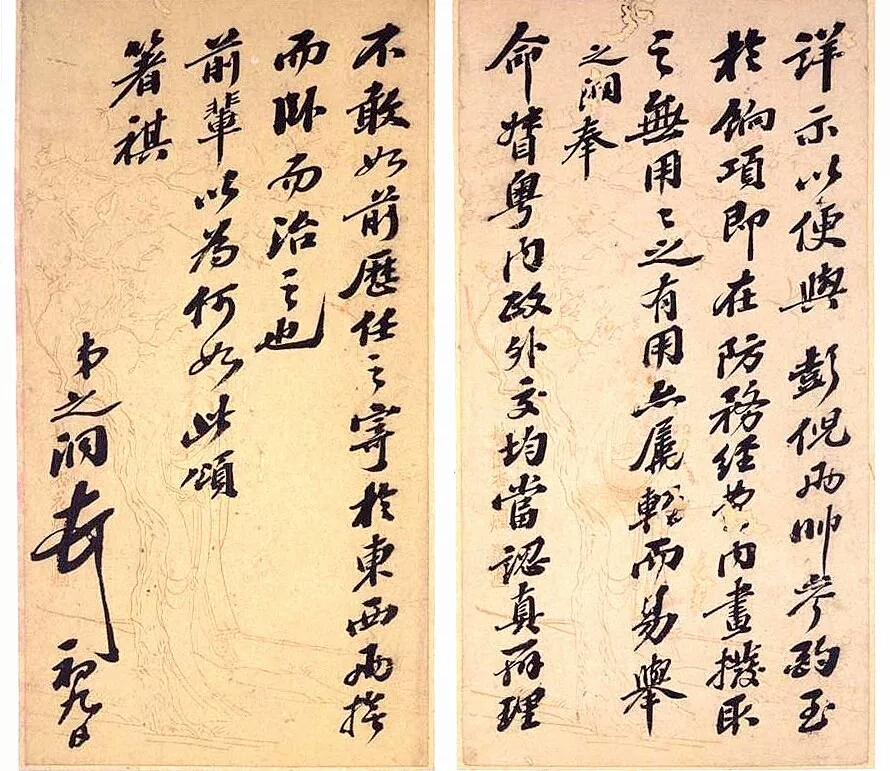 詳示以便與 彭倪兩帥參酌至
於餉項即在防務經費內畫撥取
之無用々之有用亦屬輕而易舉
之洞奉
命督粵內政外交均當認真辦理
不敢如前歷任之寄於東西兩
而臥而治之也
前輩以為何如此頌
箸祺
弟之洞 初九日